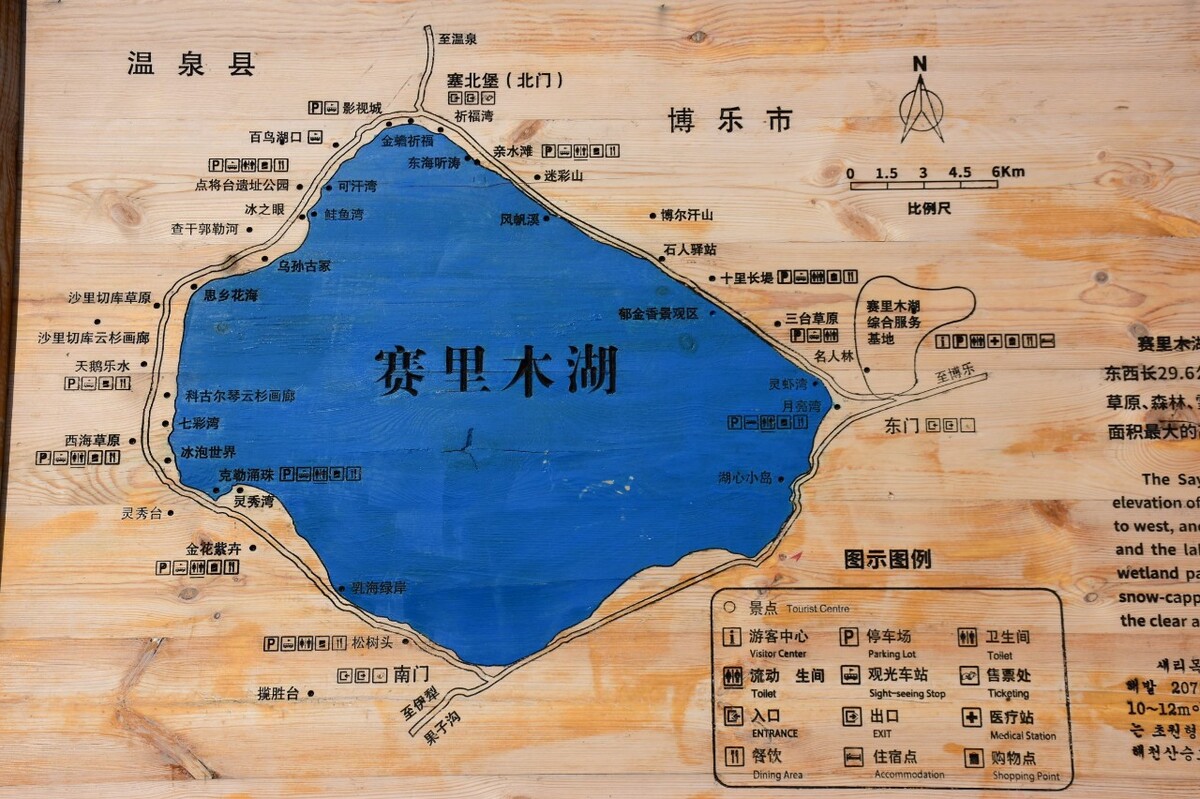 温泉县
至温泉
塞北堡（北门）
祈福湾
博乐市
N
0 1.5 3 4.5 6Km
比例尺
P 影视城
百鸟湖口
金蟾祈福
东海听涛
亲水滩 P
迷彩山
P
点将台遗址公园
可汗湾
冰之眼
鲑鱼湾
查干郭勒河
风帆溪
博尔汗山
石人驿站
乌孙古冢
十里长堤 P
思乡花海
沙里切库草原
郁金香景观区
三台草原
P
赛里木湖
综合服务
基地
i P
名人林
沙里切库云杉画廊
天鹅乐水
P
赛里木湖
灵虾湾
至博乐
月亮湾
P
东门
科古尔琴云杉画廊
七彩湾
西海草原
P
冰泡世界
克勒涌珠 P
灵秀湾
灵秀台
湖心小岛
金花紫卉
P
乳海绿岸
P 松树头
南门
揽胜台
至伊犁
果子沟
图示图例
景点 Tourist Centre
i 游客中心 P 停车场 卫生间
Visitor Center Parking Lot Toilet
流动 生间 观光车站 售票处
Toilet Sight-seeing Stop Ticketing
入口 出口 医疗站
ENTRANCE EXIT Medical Station
餐饮 住宿点 购物点
Dining Area Accommodation Shopping Point
赛里木湖
东西长29.6
草原、森林、
面积最大的
The Say
elevation of
to west, and
and the la
wetland pa
snow-capp
the clear a
새리목
해발 207
10~12m
는 초원형
해천산승